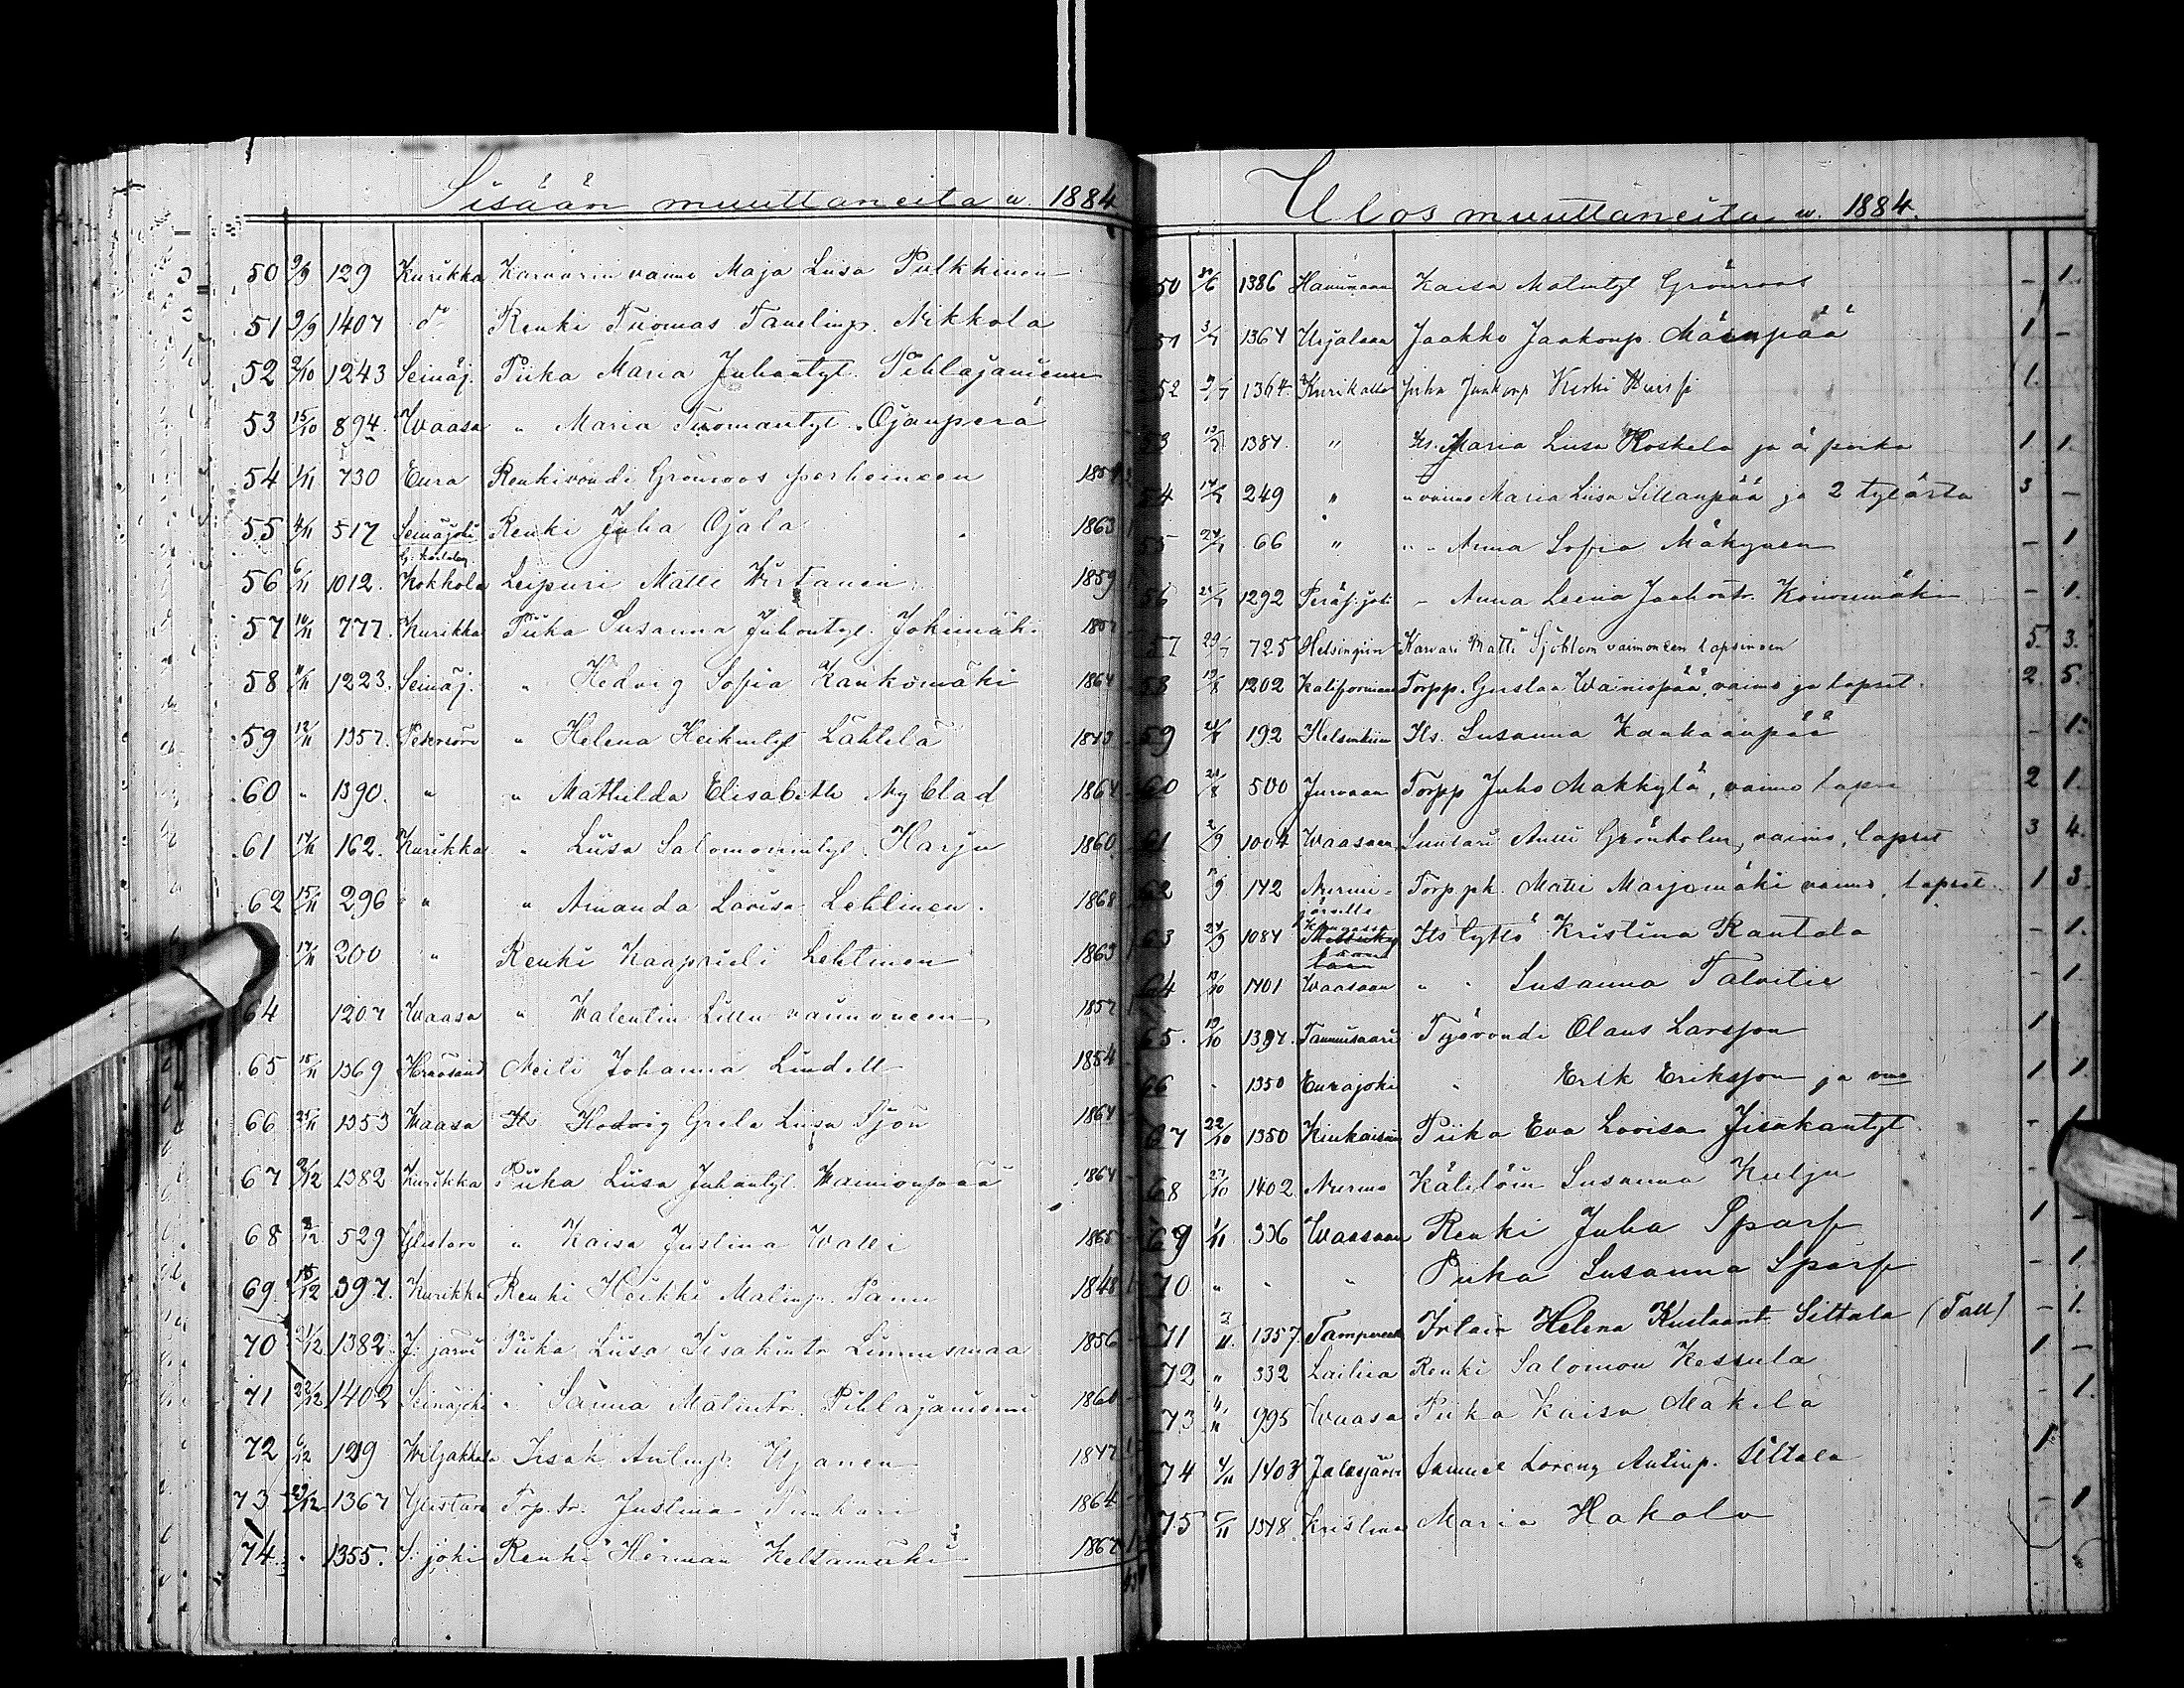 Sisään muuttaneita w. 1884
50 9/9 129 Kurikka Karvarin vaimo Maja Liisa Pulkkinen
51 9/9 1407 do Renki Tuomas Tanelinp. Nikkola 1
52 2/10 1243 Seinäj. Piika Maria Juhantyt. Pihlajaniemi
53 15/10 894 Waasa " Maria Tuomantyt. Ojanperä
54 1/11 730 Eura Renkivouti Grönroos perheineen
55 4/11 517 Seinäjoki Renki Juha Ojala 1863 1
56 6/11 1012. G: karleby Kokkola Leipuri Matti Wirtanen 1859
57 10/11 777. Kurikka Piika Susanna Juhontyt. Jokimäki 1857
58 11/11 1223. Seinäj. " Hedvig Sofia Kankomäki 1864
59 12/11 1357. Petersöre " Helena Heikintyt Lähtelä 1843
60 " 1390. " " Mathilda Elisabeth Nyblad 1864
61 14/11 162. Kurikka " Liisa Salomonintyt Harju 1860
62 15/11 296 " " Amanda Lovisa Lehtinen. 1868
17/11 200 " Renki Kaaprieli Lehtinen 1863 1
64 1207 Waasa " Walentin Lillu vaimoneen 1857 1
65 18/11 1369 Hernösand Neiti Johanna Lindell 1854
66 25/11 1353 Waasa Its Hedvig Greta Liisa Sjön 1864
67 2/12 1382 Kurikka Piika Liisa Juhantyt Wainionpää 1864
68 2/12 529 Ylistaro " Kaisa Justiina Walli 1865
69 15/12 397. Kurikka Renki Heikki Matinp. Panu 1848 1
70 21/12 1382 J: järvi Piika Liisa Iisakintr Linnusmaa 1856
71 22/12 1402 Seinäjoki " Sanna Matintr. Pihlajaniemi 1860
72 6/12 129 Wiljakkala Iisak Antinp. Ujanen 1847 1
73 29/12 1367 Ylistaro Trp. tr. Justiina Tunkari 1864
74 " 1355. S: joki Renki Herman Keltamäki 1867 1

Ulos muuttaneita w. 1884.
50 30/6 1386 Kaisa Matintyt Grönroos - 1.
51 3/7 1364 Urjalaan Jaakko Jaakonp. Mäenpää 1 -
52 9/7 1364. Kurikalle Juha Jaakonp 1.
53 13/7 1384. " Its. Maria Liisa Koskela ja ä. poika 1 1.
54 14/7 249 " " vaimo Maria Liisa Sillanpää ja 2 tytärtä 3 -
55 24/7 66 " " " Anna Sofia Mäkynen - 1
56 25/7 1292 Peräs: joki - Anna Leena Jaakontr. Könönmäki - 1.
57 29/7 725 Helsingiin Karvari Matti Sjöblom vaimoneen lapsineen 5. 3.
58 19/8 1202 Kaliforniaan Torpp. Gustaa Wainiopää, vaimo ja lapset. 2. 5.
59 21/8 192 Helsinkiin Its. Susanna Kankaanpää - 1.
60 28/8 500 Jurvaan Torpp Juho Makkylä, vaimo lapsi 2 1.
61 2/9 1004 Waasaan Suutari Antti Grönholm, vaimo, lapset 3 4.
62 /9 142 Nurmi- järvelle Torp pk. Matti Marjamäki vaimo, lapset. 1 3.
63 24/9 1084 Its tyttö Kristina Rantala - 1.
64 13/10 1401 Waasaan " " Susanna Talvitie - 1.
65. 19/10 1397. Tammisaari Työvouti Olaus Larsson 1
66 " 1350 Eurajoki " Erik Eriksson ja vmo 1 1.
67 22/10 1350 Kiukaisiin Piika Eva Lovisa Jisakantyt - 1.
68 27/10 1402 Nurmo Kätilöin Susanna Kulju -
69 1/11. 336 Waasaan Renki Juha Sparf 1 -
70 " " " Piika Susanna Sparf - 1.
71 2/11. 1357. Tampereelle Irlain Helena Kustaant Siltala (Tall) - 1.
72 " 332 Laihia Renki Salomon Kessula 1 -
73 4/11 995 Waasa Piika Kaisa Mäkelä - 1.
74 4/11 1403 Jalasjärvi Samuel Lorenz Antinp. Siltala 1.
75 5/11 1348 Kristina Maria Hakala - 1